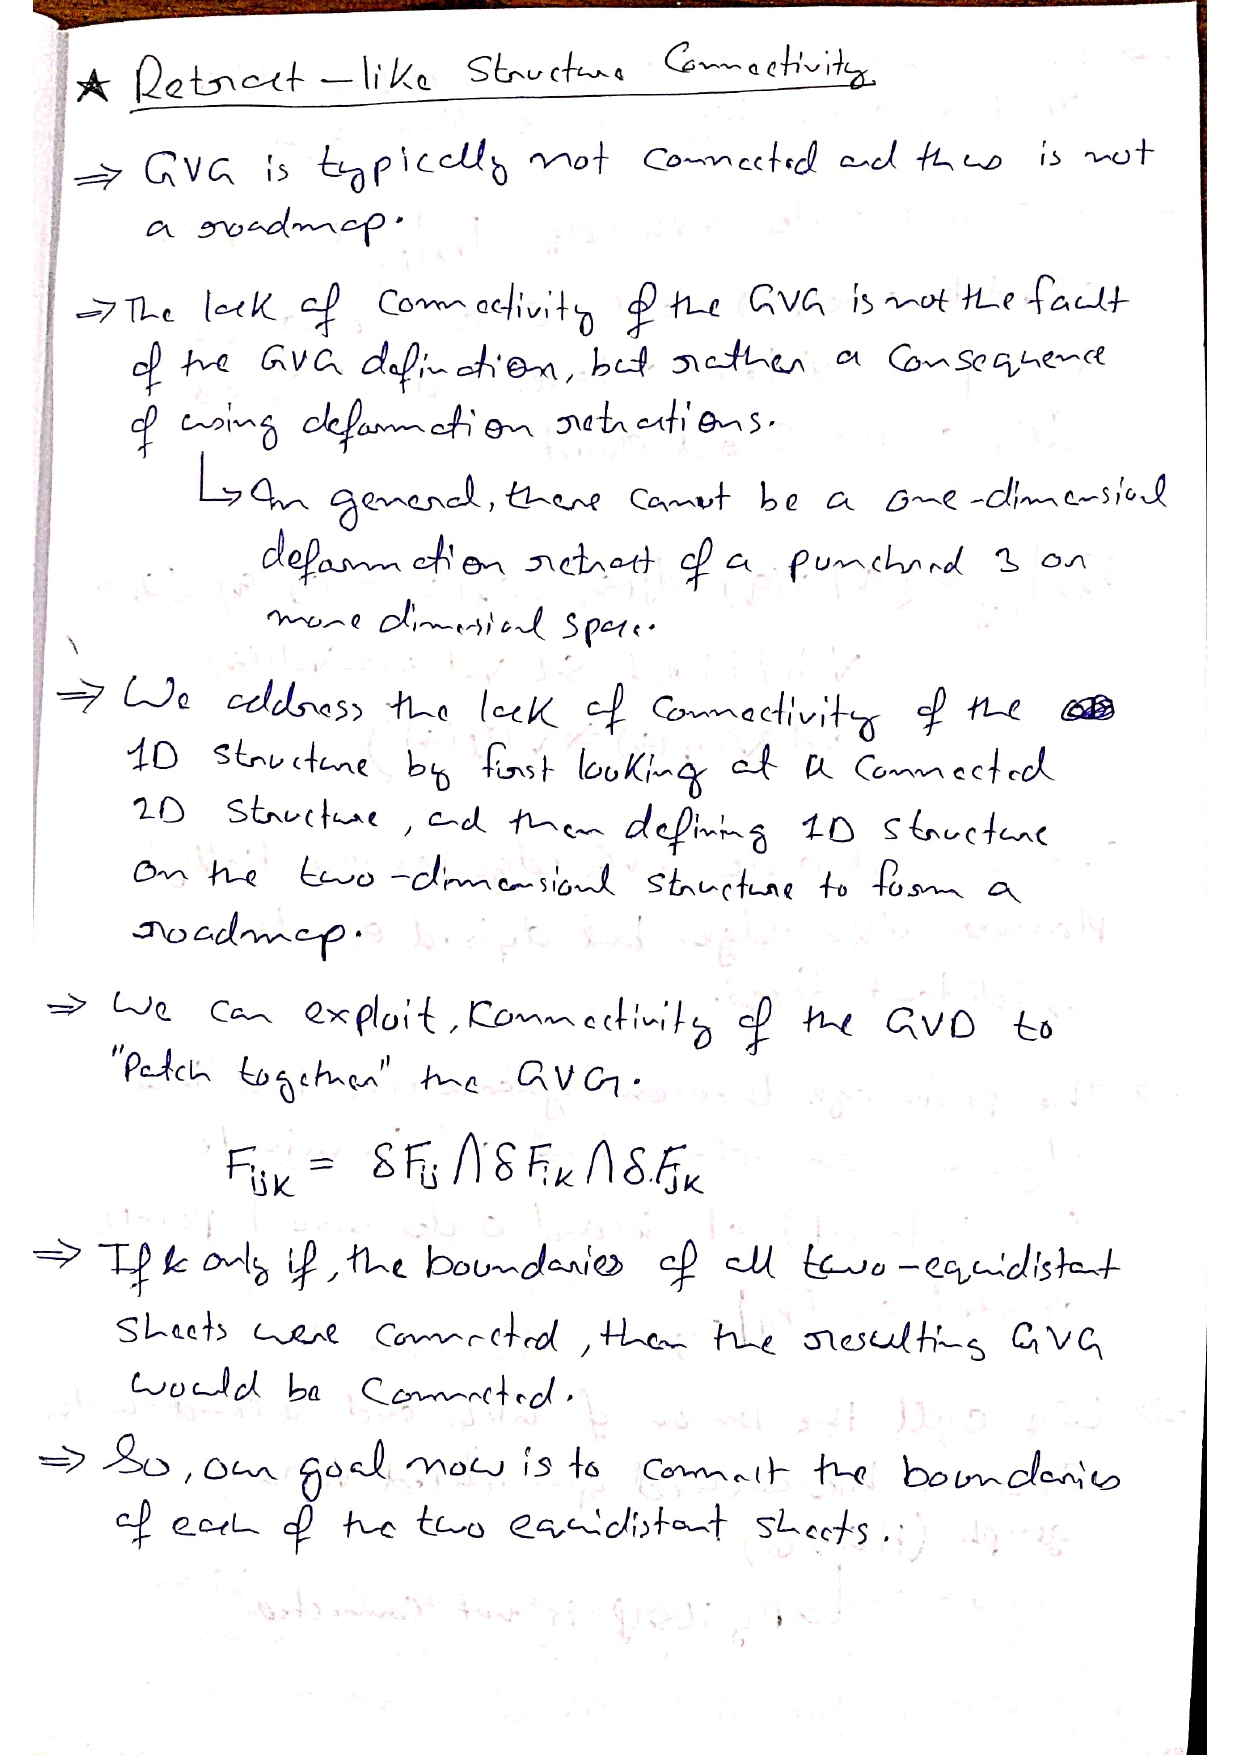 ★ Retract-like Structure Connectivity
⇒ GVG is typically not connected and thus is not
a roadmap.
⇒ The lack of connectivity of the GVG is not the fault
of the GVG defination, but rather a Consequence
of using deformation retractions.
↳ In general, there cannot be a one-dimensional
deformation retract of a punctured 3 or
more dimensional space.
⇒ We address the lack of connectivity of the
1D structure by first looking at a connected
2D structure, and then defining 1D structure
on the two-dimensional structure to form a
roadmap.
⇒ We can exploit, Connectivity of the GVD to
"Patch together" the GVG.
F_ijk = δF_ij ∩ δF_ik ∩ δF_jk
⇒ If & only if, the boundaries of all two-equidistant
sheets were connected, then the resulting GVG
would be connected.
⇒ So, our goal now is to connect the boundaries
of each of the two equidistant sheets.